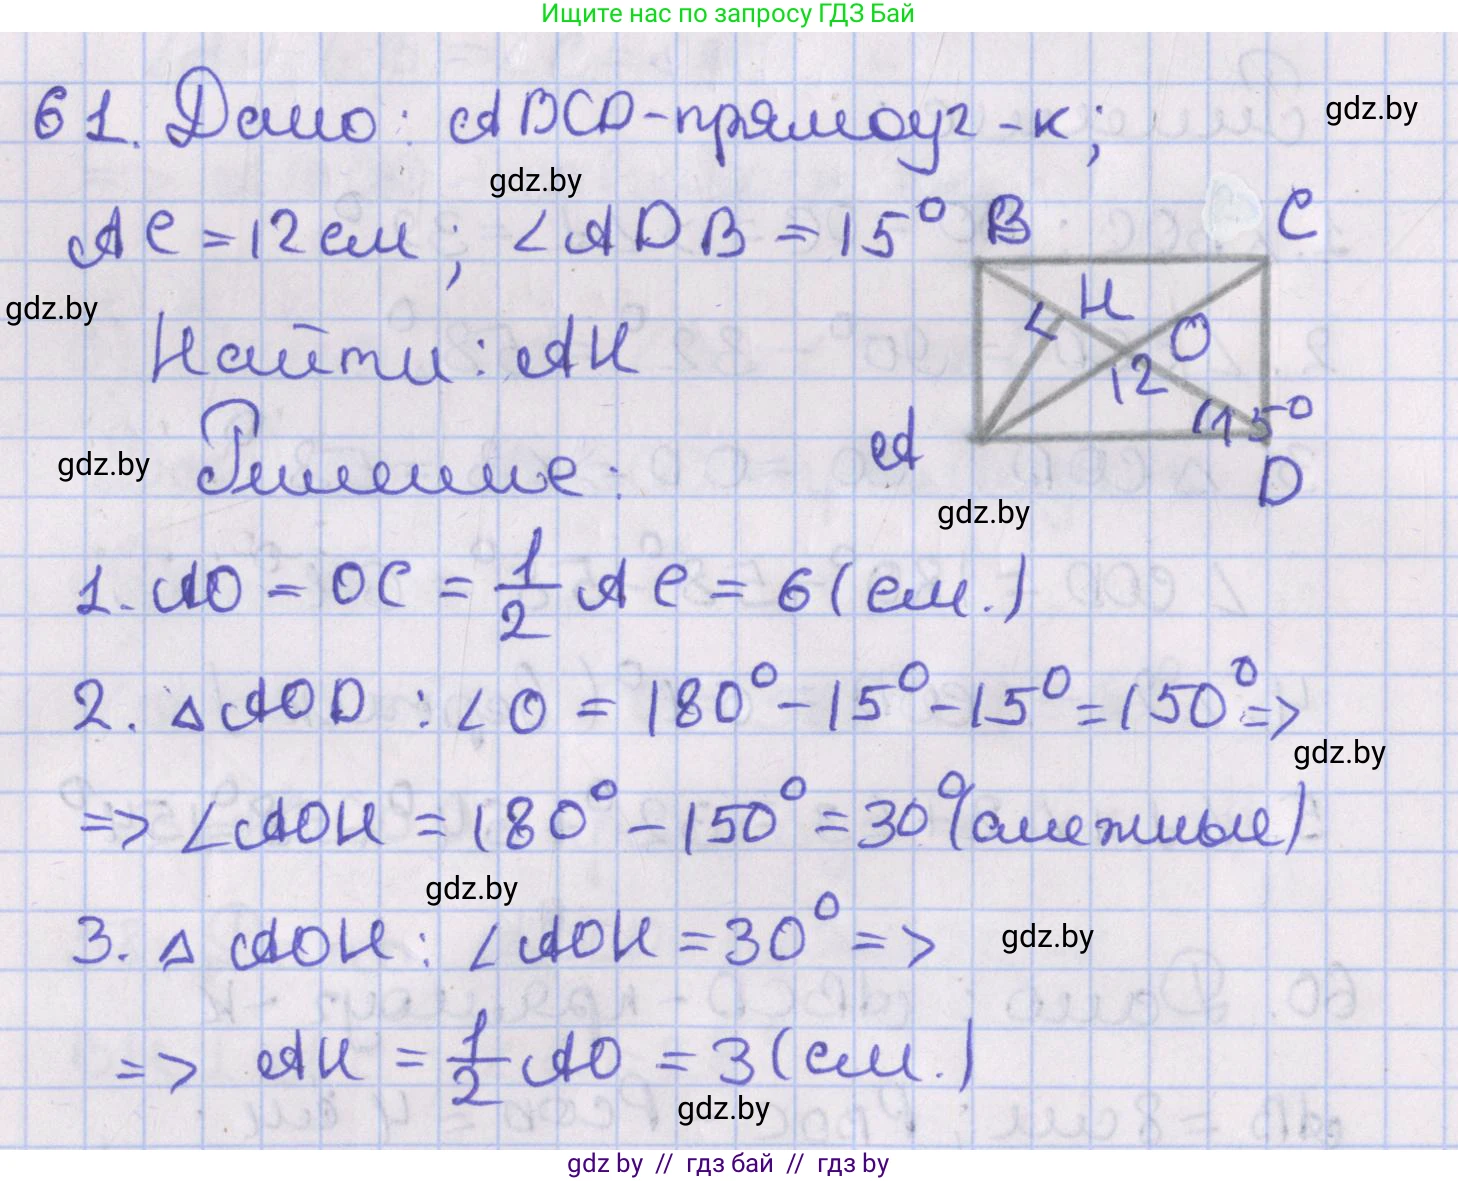 Ищите нас по запросу ГДЗ Бай
61. Дано: ABCD-прямоуг-к;
gdz.by
gdz.by
AC = 12 см; ∠ADB = 15°
B
C
gdz.by
H
O
12
15°
A
D
Найти: AH
gdz.by
Решение:
gdz.by
1. AO = OC = 1/2 AC = 6 (см.)
2. △AOD: ∠O = 180° - 15° - 15° = 150° =>
gdz.by
=> ∠AOH = 180° - 150° = 30° (смежные)
gdz.by
3. △AOH: ∠AOH = 30° =>
gdz.by
=> AH = 1/2 AO = 3 (см.)
gdz.by
gdz by // гдз бай // гдз by